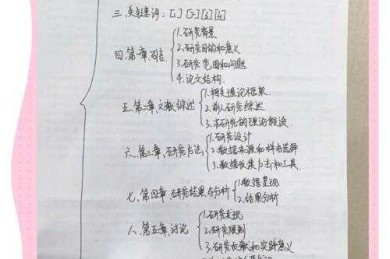 三.关键词:[1][2][3][4]
1.研究背景
2.研究目的和意义
四.第一章,引言
3.研究范围和问题
4.论文结构.
1.相关理论框架.
五.第二章,文献综述
2.前人研究综述
3.本研究的理论假设.
1.研究设计
六.第三章,研究方法
2.数据来源和样本选择
3.数据收集方法和工具.
1.数据呈现
七.第四章 研究结果与分析
2.结果分析
1.研究发现
八.第五章,讨论
2.研究限制
3.研究贡献和实际意义